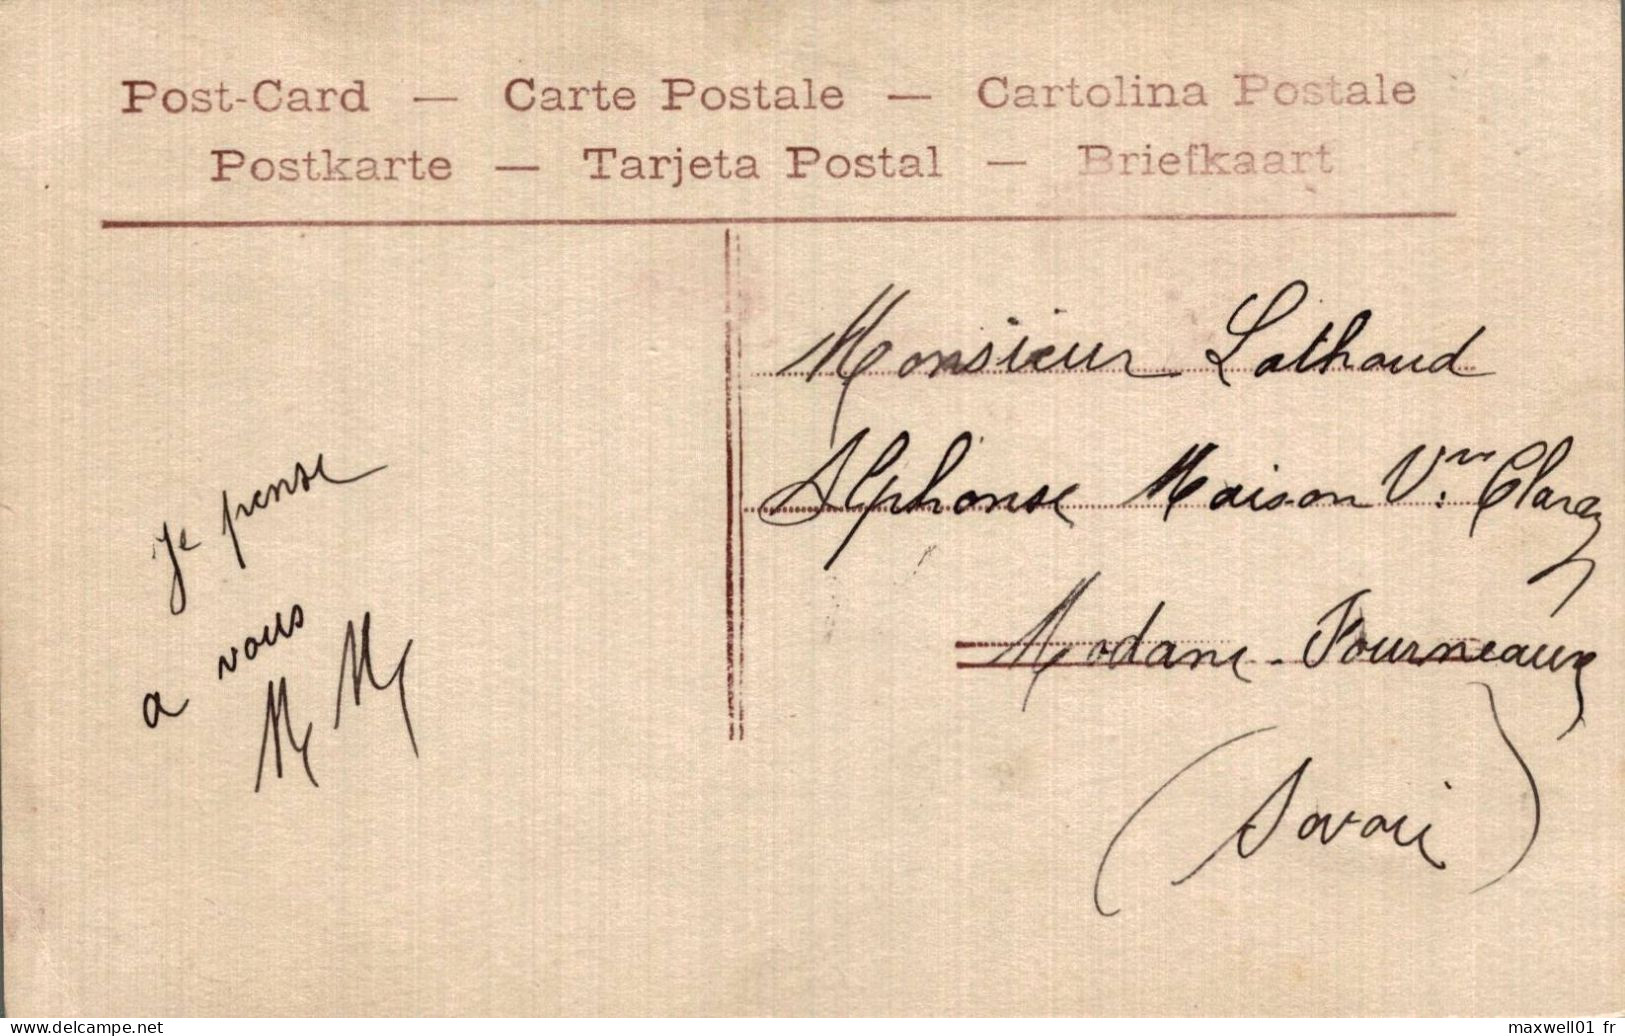 Post-Card — Carte Postale — Cartolina Postale
Postkarte — Tarjeta Postal — Briefkaart
Je pense
a vous
M M
Monsieur Lathoud
Alphonse Maison Vve Clarez
Modane-Fourneaux
(Savoie)
www.delcampe.net
maxwell01_fr